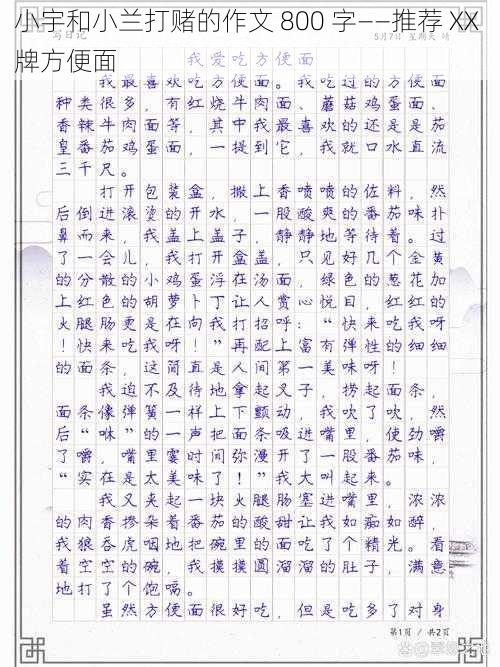 小宇和小兰打赌的作文 800 字——推荐 XX
牌方便面
写日记
5月7日 星期天 晴
我爱吃方便面
我最喜欢吃方便面。我吃过的方便面、
种类很多，有红烧牛肉面、蘑菇鸡蛋面、
香辣牛肉面等，其中我最喜欢的还是是茄
皇番茄鸡蛋面，一提到它，我就口水直流
三千尺。
打开包装盒，撒上香喷喷的佐料，然
后倒进滚烫的开水，一股酸爽的番茄味扑
鼻而来，我盖上盖子，静静地等待着。过
了一会儿，我打开盒盖，只见好几个金黄
的分散的小鸡蛋浮在汤面，绿色的葱花加
上红色的胡萝卜丁让人赏心悦目，红红的
火腿肠更是在向我打招呼：“快来吃我呀
！快来吃我呀！”再配上富有弹性的细细
的面条，这简直是人间第一美味呀！
我迫不及待地拿起叉子，捞起面条，
面条像弹簧一样上下颤动，我吹了吹，然
后“咻”的一声把面条吸进嘴里，使劲嚼
了嚼，嘴里霎时间弥漫开了一股番茄味，
“实在是太美味了！”我大叫起来。
我又夹起一块火腿肠塞进嘴里，浓浓
的肉香掺杂着番茄的酸甜让我如痴如醉，
我狼吞虎咽地把碗里的面吃了个精光。看
着空空的碗，我摸摸圆溜溜的肚子，满意
地打了个饱嗝。
虽然方便面很好吃，但是吃多了对身
第1页 / 共2页